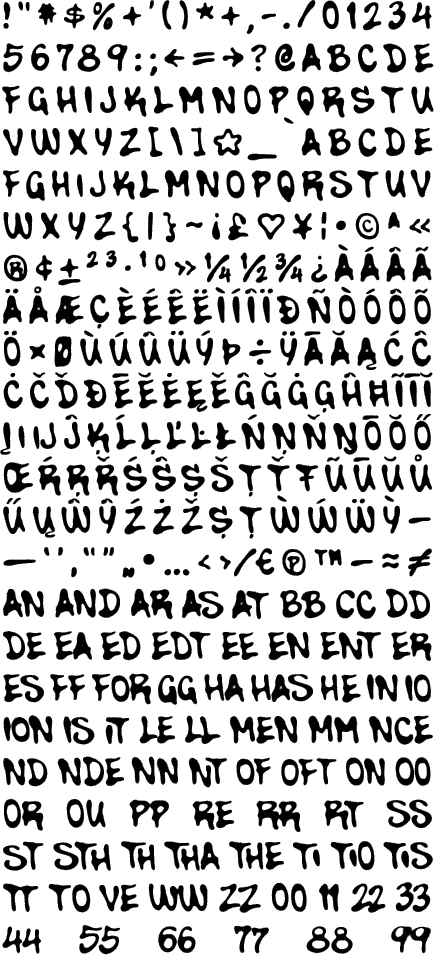 ! " * $ % + ' ( ) * + , - . / 0 1 2 3 4
5 6 7 8 9 : ; ← = → ? @ A B C D E
F G H I J K L M N O P Q R S T U
V W X Y Z [ \ ] ☆ _ ` A B C D E
F G H I J K L M N O P Q R S T U V
W X Y Z { | } ~ ¡ £ ♡ ¥ ¦ • © ᴬ «
® ¢ ± ² ³ · ¹ ⁰ » ¼ ½ ¾ ¿ À Á Â Ã
Ä Å Æ Ç È É Ê Ë Ì Í Î Ï Ð Ñ Ò Ó Ô Õ
Ö × Ø Ù Ú Û Ü Ý Þ ÷ Ÿ Ā Ă Ą Ć Ĉ
Ċ Č Ď Đ Ē Ĕ Ė Ę Ě Ĝ Ğ Ġ Ģ Ĥ Ħ Ĩ Ī
Į I I J Ĵ Ķ Ĺ Ļ Ľ Ŀ Ł Ń Ņ Ň Ŋ Ō Ŏ Ő
Œ Ŕ Ŗ Ř Ś Ŝ Ş Š Ţ Ť Ŧ Ũ Ū Ŭ Ů
Ű Ų Ŵ Ŷ Ź Ż Ž Ș Ț Ẁ Ẃ Ẅ Ỳ –
— ‘ ’ ‚ “ ” „ • … ‹ › / € ℗ ™ − ≈ ≠
AN AND AR AS AT BB CC DD
DE EA ED EDT EE EN ENT ER
ES FF FOR GG HA HAS HE IN IO
ION IS IT LE LL MEN MM NCE
ND NDE NN NT OF OFT ON OO
OR OU PP RE RR RT SS
ST STH TH THA THE TI TIO TIS
TT TO VE WW ZZ 00 11 22 33
44 55 66 77 88 99